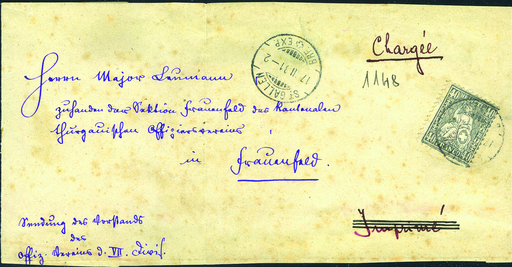 Chargée
1148
ST. GALLEN
17. II. 81 - 2
BRF. EXP.
Herrn Major Leumann
zuhanden der Sektion Frauenfeld des kantonalen
thurgauischen Offiziersvereins
in Frauenfeld.
Sendung des Vorstands
des
Offiz. Vereins d. VII. Divis.
Imprimé